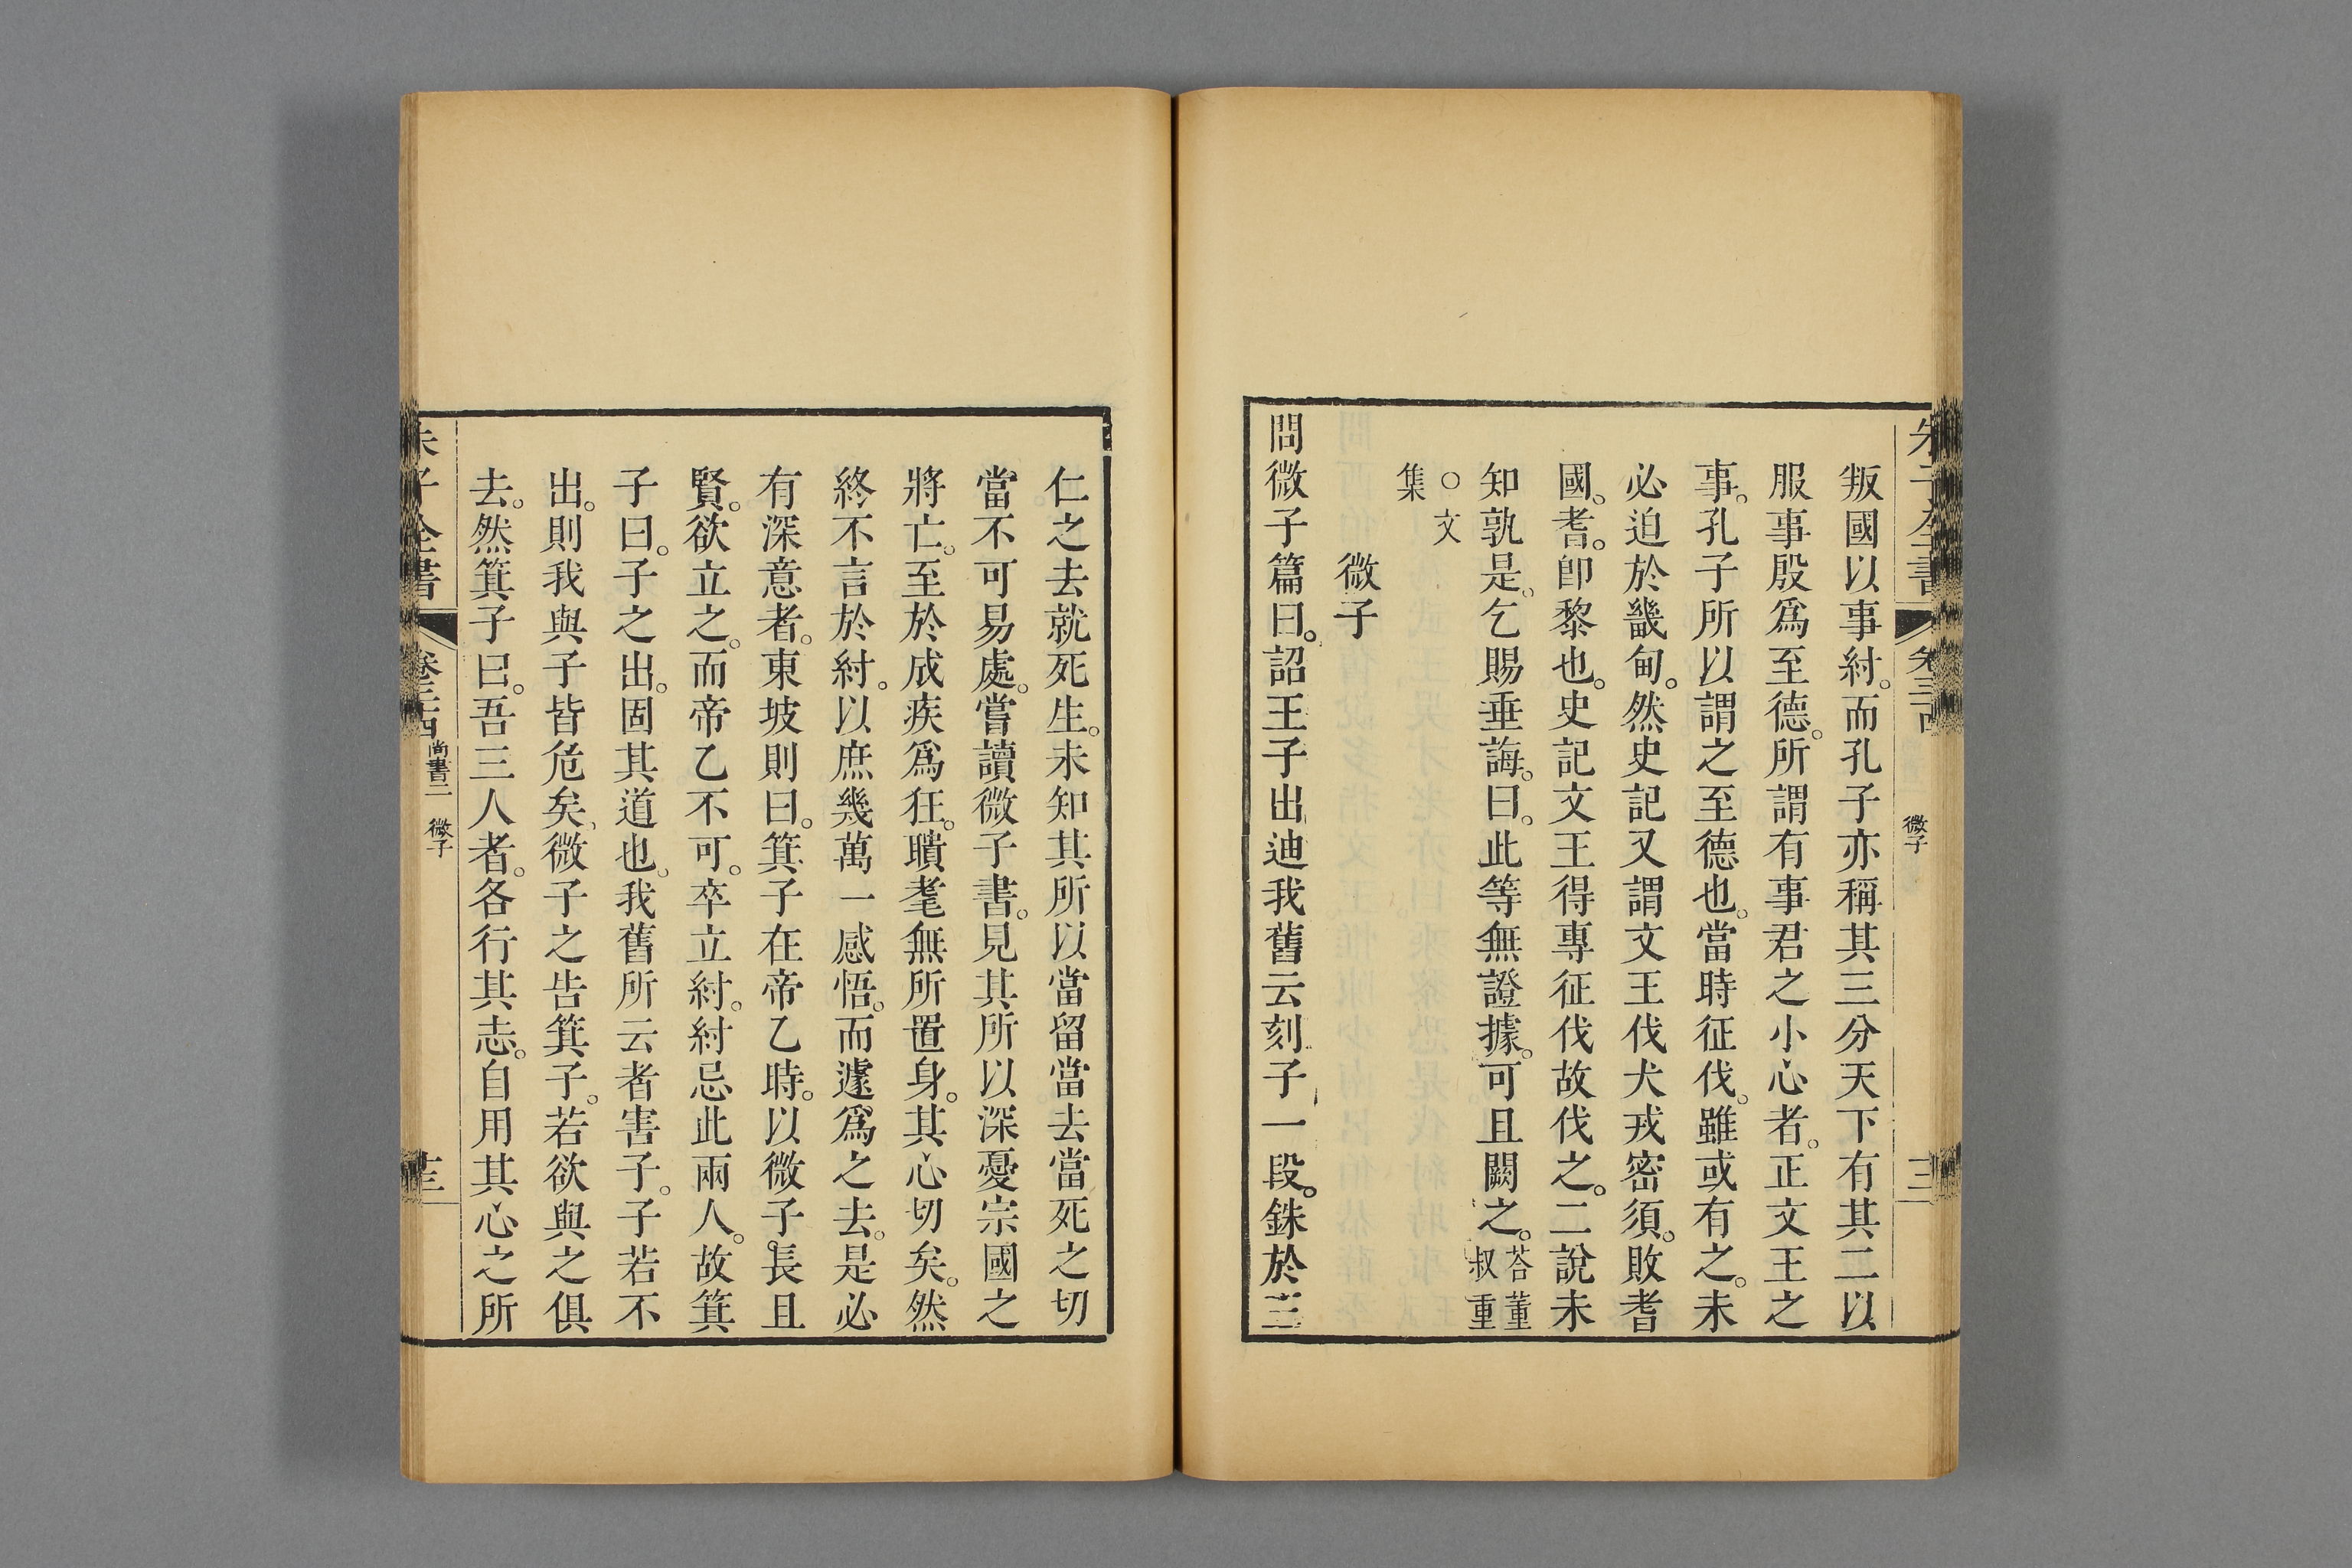 叛國以事紂。而孔子亦稱其三分天下有其二以
服事殷爲至德。所謂有事君之小心者。正文王之
事。孔子所以謂之至德也。當時征伐。雖或有之。未
必迫於畿甸。然史記又謂文王伐犬戎密須。敗耆
國。耆。卽黎也。史記文王得專征伐故伐之。二說未
知孰是。乞賜垂誨。曰。此等無證據。可且闕之。荅董叔重
○文集
微子
問微子篇曰。詔王子出迪我舊云刻子一段。銖於三
仁之去就死生。未知其所以當留當去當死之切
當不可易處。嘗讀微子書。見其所以深憂宗國之
將亡。至於成疾爲狂。聵耄無所置身。其心切矣。然
終不言於紂。以庶幾萬一感悟。而遽爲之去。是必
有深意者。東坡則曰。箕子在帝乙時。以微子。長且
賢。欲立之。而帝乙不可。卒立紂。紂忌此兩人。故箕
子曰。子之出。固其道也。我舊所云者害子。子若不
出。則我與子皆危矣。微子之告箕子。若欲與之俱
去。然箕子曰。吾三人者。各行其志。自用其心之所
朱子全書
卷三十四
尚書二
微子